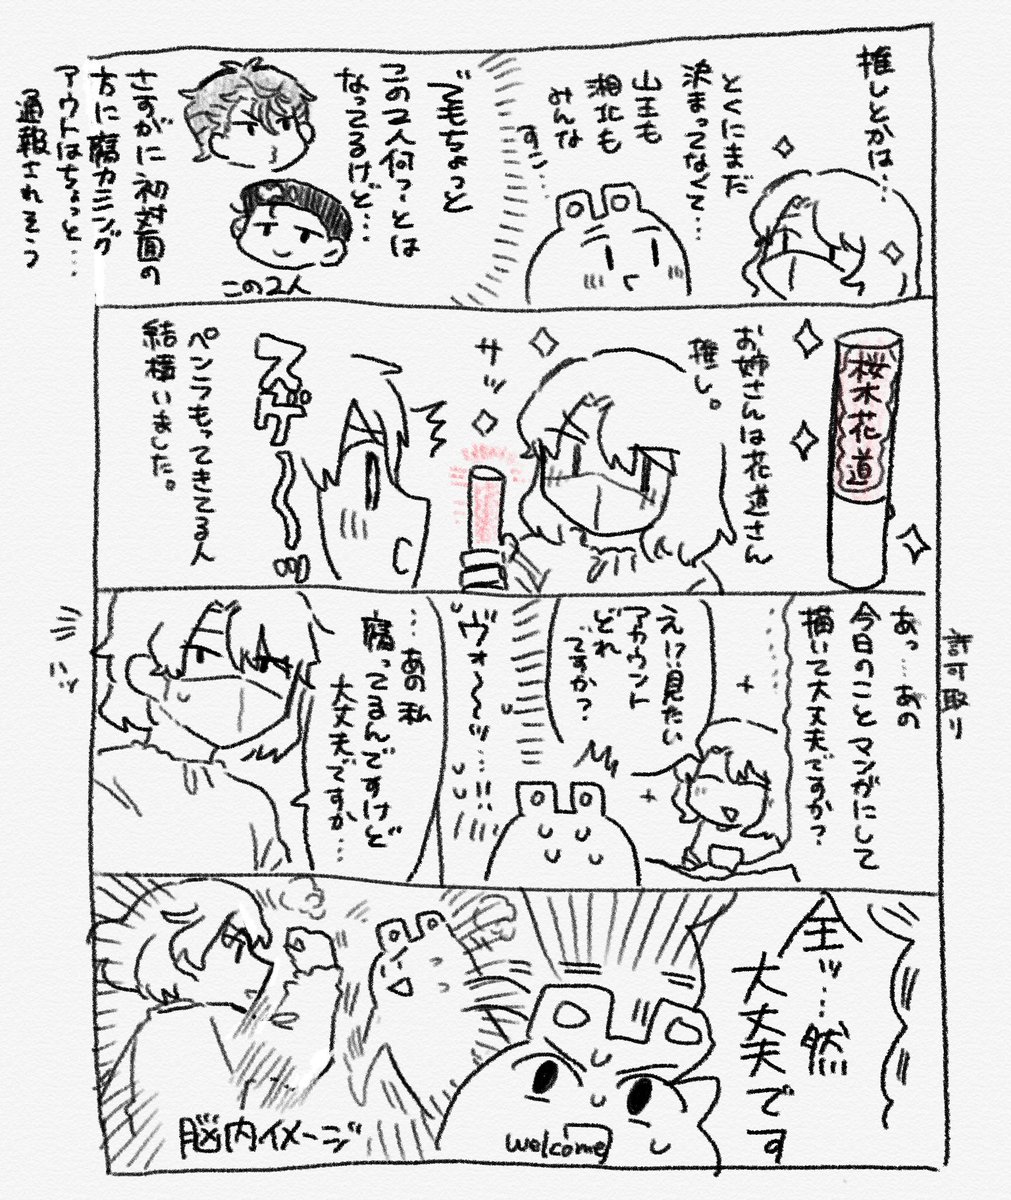 推しとかは…
とくにまだ
決まってなくて…
山王も
湘北も
みんな
すこ…
でもちょっと
この2人何っ…とは
なってるけど…
この2人
さすがに初対面の
方に腐カミング
アウトはちょっと…
通報されそう
桜木花道
お姉さんは花道さん
推し。
サッ
スゲ〜〜ッ
ペンラもってきてる人
結構いました。
許可取り
あっ…あの
今日のことマンガにして
描いて大丈夫ですか?
えー!?見たい
アカウント
どれ
ですか?
ヴォ〜〜ッ…!!
…あの私
腐ってるんですけど
大丈夫ですか…
全ッ…然
大丈夫です
welcome
脳内イメージ